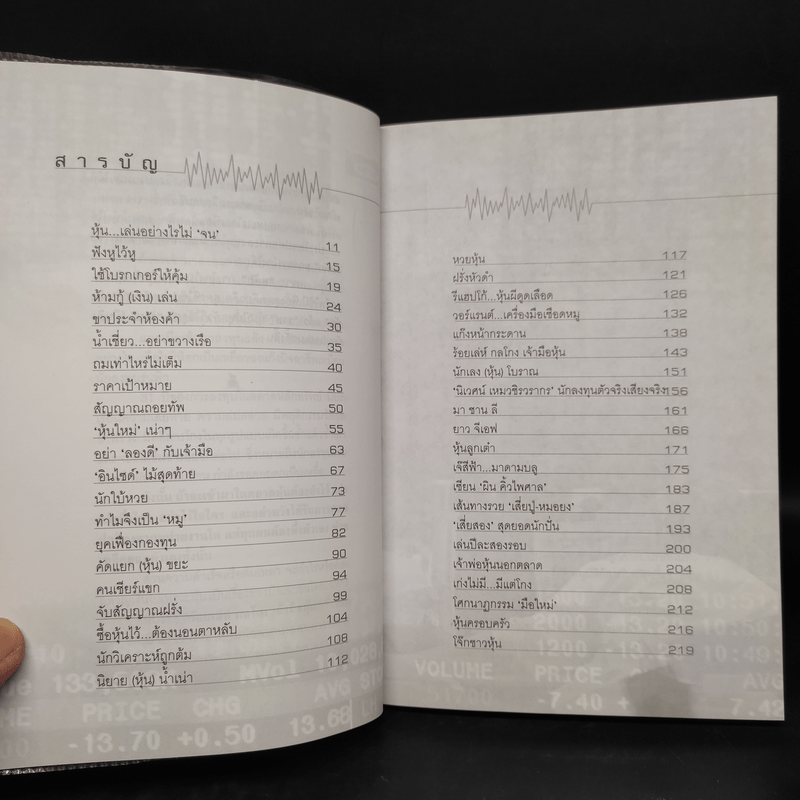 สารบัญ
หุ้น...เล่นอย่างไรไม่ 'จน' 11
ฟังหูไว้หู 15
ใช้โบรกเกอร์ให้คุ้ม 19
ห้ามกู้ (เงิน) เล่น 24
ขาประจำห้องค้า 30
น้ำเชี่ยว...อย่าขวางเรือ 35
ถมเท่าไหร่ไม่เต็ม 40
ราคาเป้าหมาย 45
สัญญาณถอยทัพ 50
'หุ้นใหม่' เน่าๆ 55
อย่า 'ลองดี' กับเจ้ามือ 63
'อินไซด์' ไม้สุดท้าย 67
นักใบ้หวย 73
ทำไมจึงเป็น 'หมู' 77
ยุคเฟื่องกองทุน 82
คัดแยก (หุ้น) ขยะ 90
คนเชียร์แขก 94
จับสัญญาณฝรั่ง 99
ซื้อหุ้นไว้...ต้องนอนตาหลับ 104
นักวิเคราะห์ถูกต้ม 108
นิยาย (หุ้น) น้ำเน่า 112
หวยหุ้น 117
ฝรั่งหัวดำ 121
รีแฮปโก้...หุ้นผีดูดเลือด 126
วอร์แรนต์...เครื่องมือเชือดหมู 132
แก๊งหน้ากระดาน 138
ร้อยเล่ห์ กลโกง เจ้ามือหุ้น 143
นักเลง (หุ้น) โบราณ 151
'นิเวศน์ เหมวชิรวรากร' นักลงทุนตัวจริงเสียงจริง 156
มา ซาน ลี 161
ยาว จีเอฟ 166
หุ้นลูกเต๋า 171
เจ๊สีฟ้า...มาดามบลู 175
เซียน 'ผิน คิ้วไพศาล' 183
เส้นทางรวย 'เสี่ยปู่-หมอยง' 187
'เสี่ยสอง' สุดยอดนักปั่น 193
เล่นปีละสองรอบ 200
เจ้าพ่อหุ้นนอกตลาด 204
เก่งไม่มี...มีแต่โกง 208
โศกนาฏกรรม 'มือใหม่' 212
หุ้นครอบครัว 216
โจ๊กชาวหุ้น 219
PRICE CHG
-13.70 +0.50 13.68
VOLUME PRICE
-7.40 + 7.42